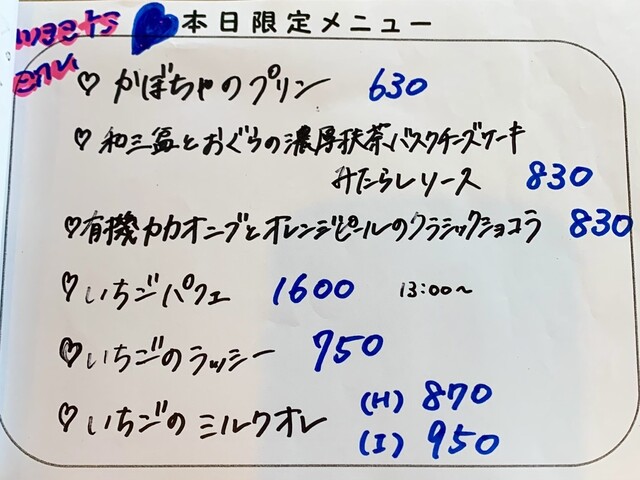 sweets
menu
本日限定メニュー
♡ かぼちゃのプリン 630
♡ 和三盆とおぐらの濃厚抹茶バスクチーズケーキ
みたらしソース 830
♡ 有機カカオニブとオレンジピールのクラシックショコラ 830
♡ いちごパフェ 1600 13:00~
♡ いちごのラッシー 750
♡ いちごのミルクオレ (H) 870
(I) 950